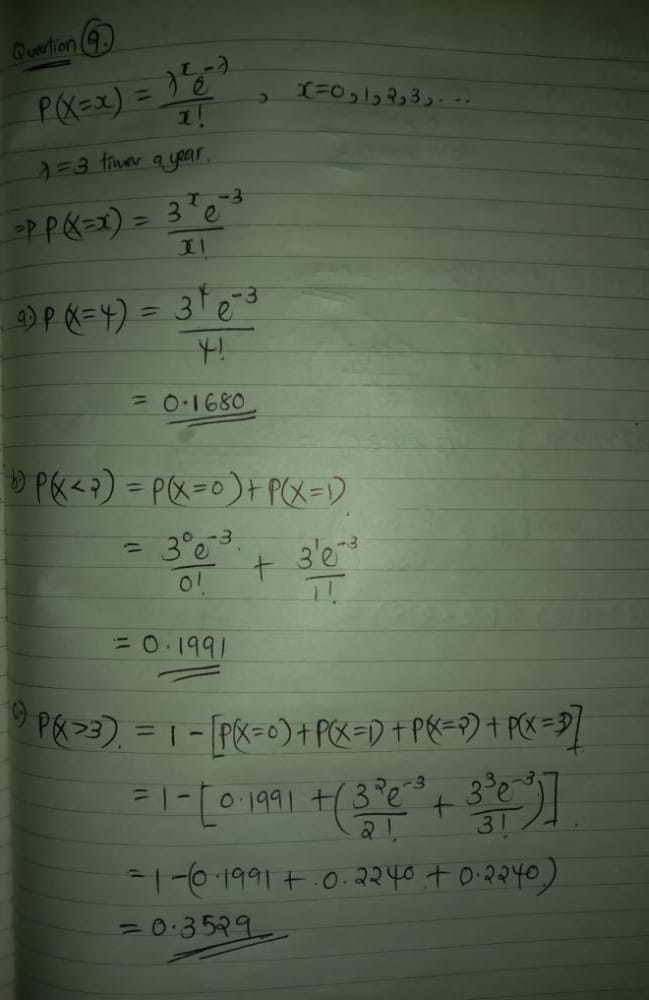 Question 9.
P(X=x) = λ^x e^-λ / x! , x=0,1,2,3,...
λ=3 times a year.
⇒ P(X=x) = 3^x e^-3 / x!
a.) P(X=4) = 3^4 e^-3 / 4!
= 0.1680
b.) P(X<2) = P(X=0)+P(X=1)
= 3^0 e^-3 / 0! + 3^1 e^-3 / 1!
= 0.1991
c.) P(X>3) = 1-[P(X=0)+P(X=1)+P(X=2)+P(X=3)]
= 1-[0.1991+(3^2 e^-3 / 2! + 3^3 e^-3 / 3!)]
= 1-(0.1991+0.2240+0.2240)
= 0.3529